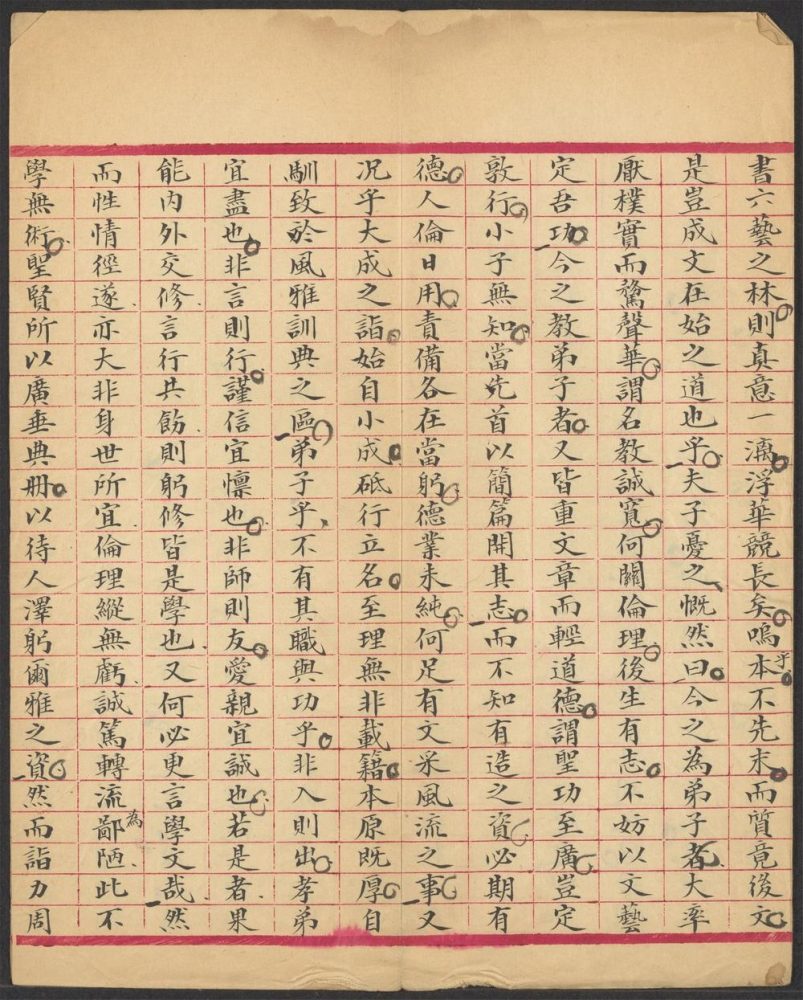 書六藝之林則真意一漓浮華競長矣嗚乎本不先末而質竟後文
是豈成文在始之道也乎夫子憂之慨然曰今之為弟子者大率
厭樸實而騖聲華謂名教誠寬何關倫理後生有志不妨以文藝
定吾功今之教弟子者又皆重文章而輕道德謂聖功至廣豈定
敦行小子無知當先首以簡篇開其志而不知有造之資必期有
德人倫日用責備各在當躬德業未純何足有文采風流之事又
况乎大成之詣始自小成砥行立名至理無非載籍本原既厚自
馴致於風雅訓典之區弟子乎不有其職與功乎非入則出孝弟
宜盡也非言則行謹信宜懍也非師則友愛親宜誠也若是者果
能內外交修言行共飭則躬修皆是學也又何必更言學文哉然
而性情徑遂亦大非身世所宜倫理縱無虧誠篤轉流為鄙陋此不
學無術聖賢所以廣垂典册以待人澤躬爾雅之資然而詣力周